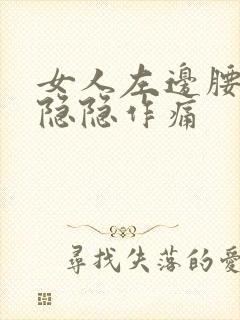 女人左邊腰
隐隐作痛
尋找失落的愛